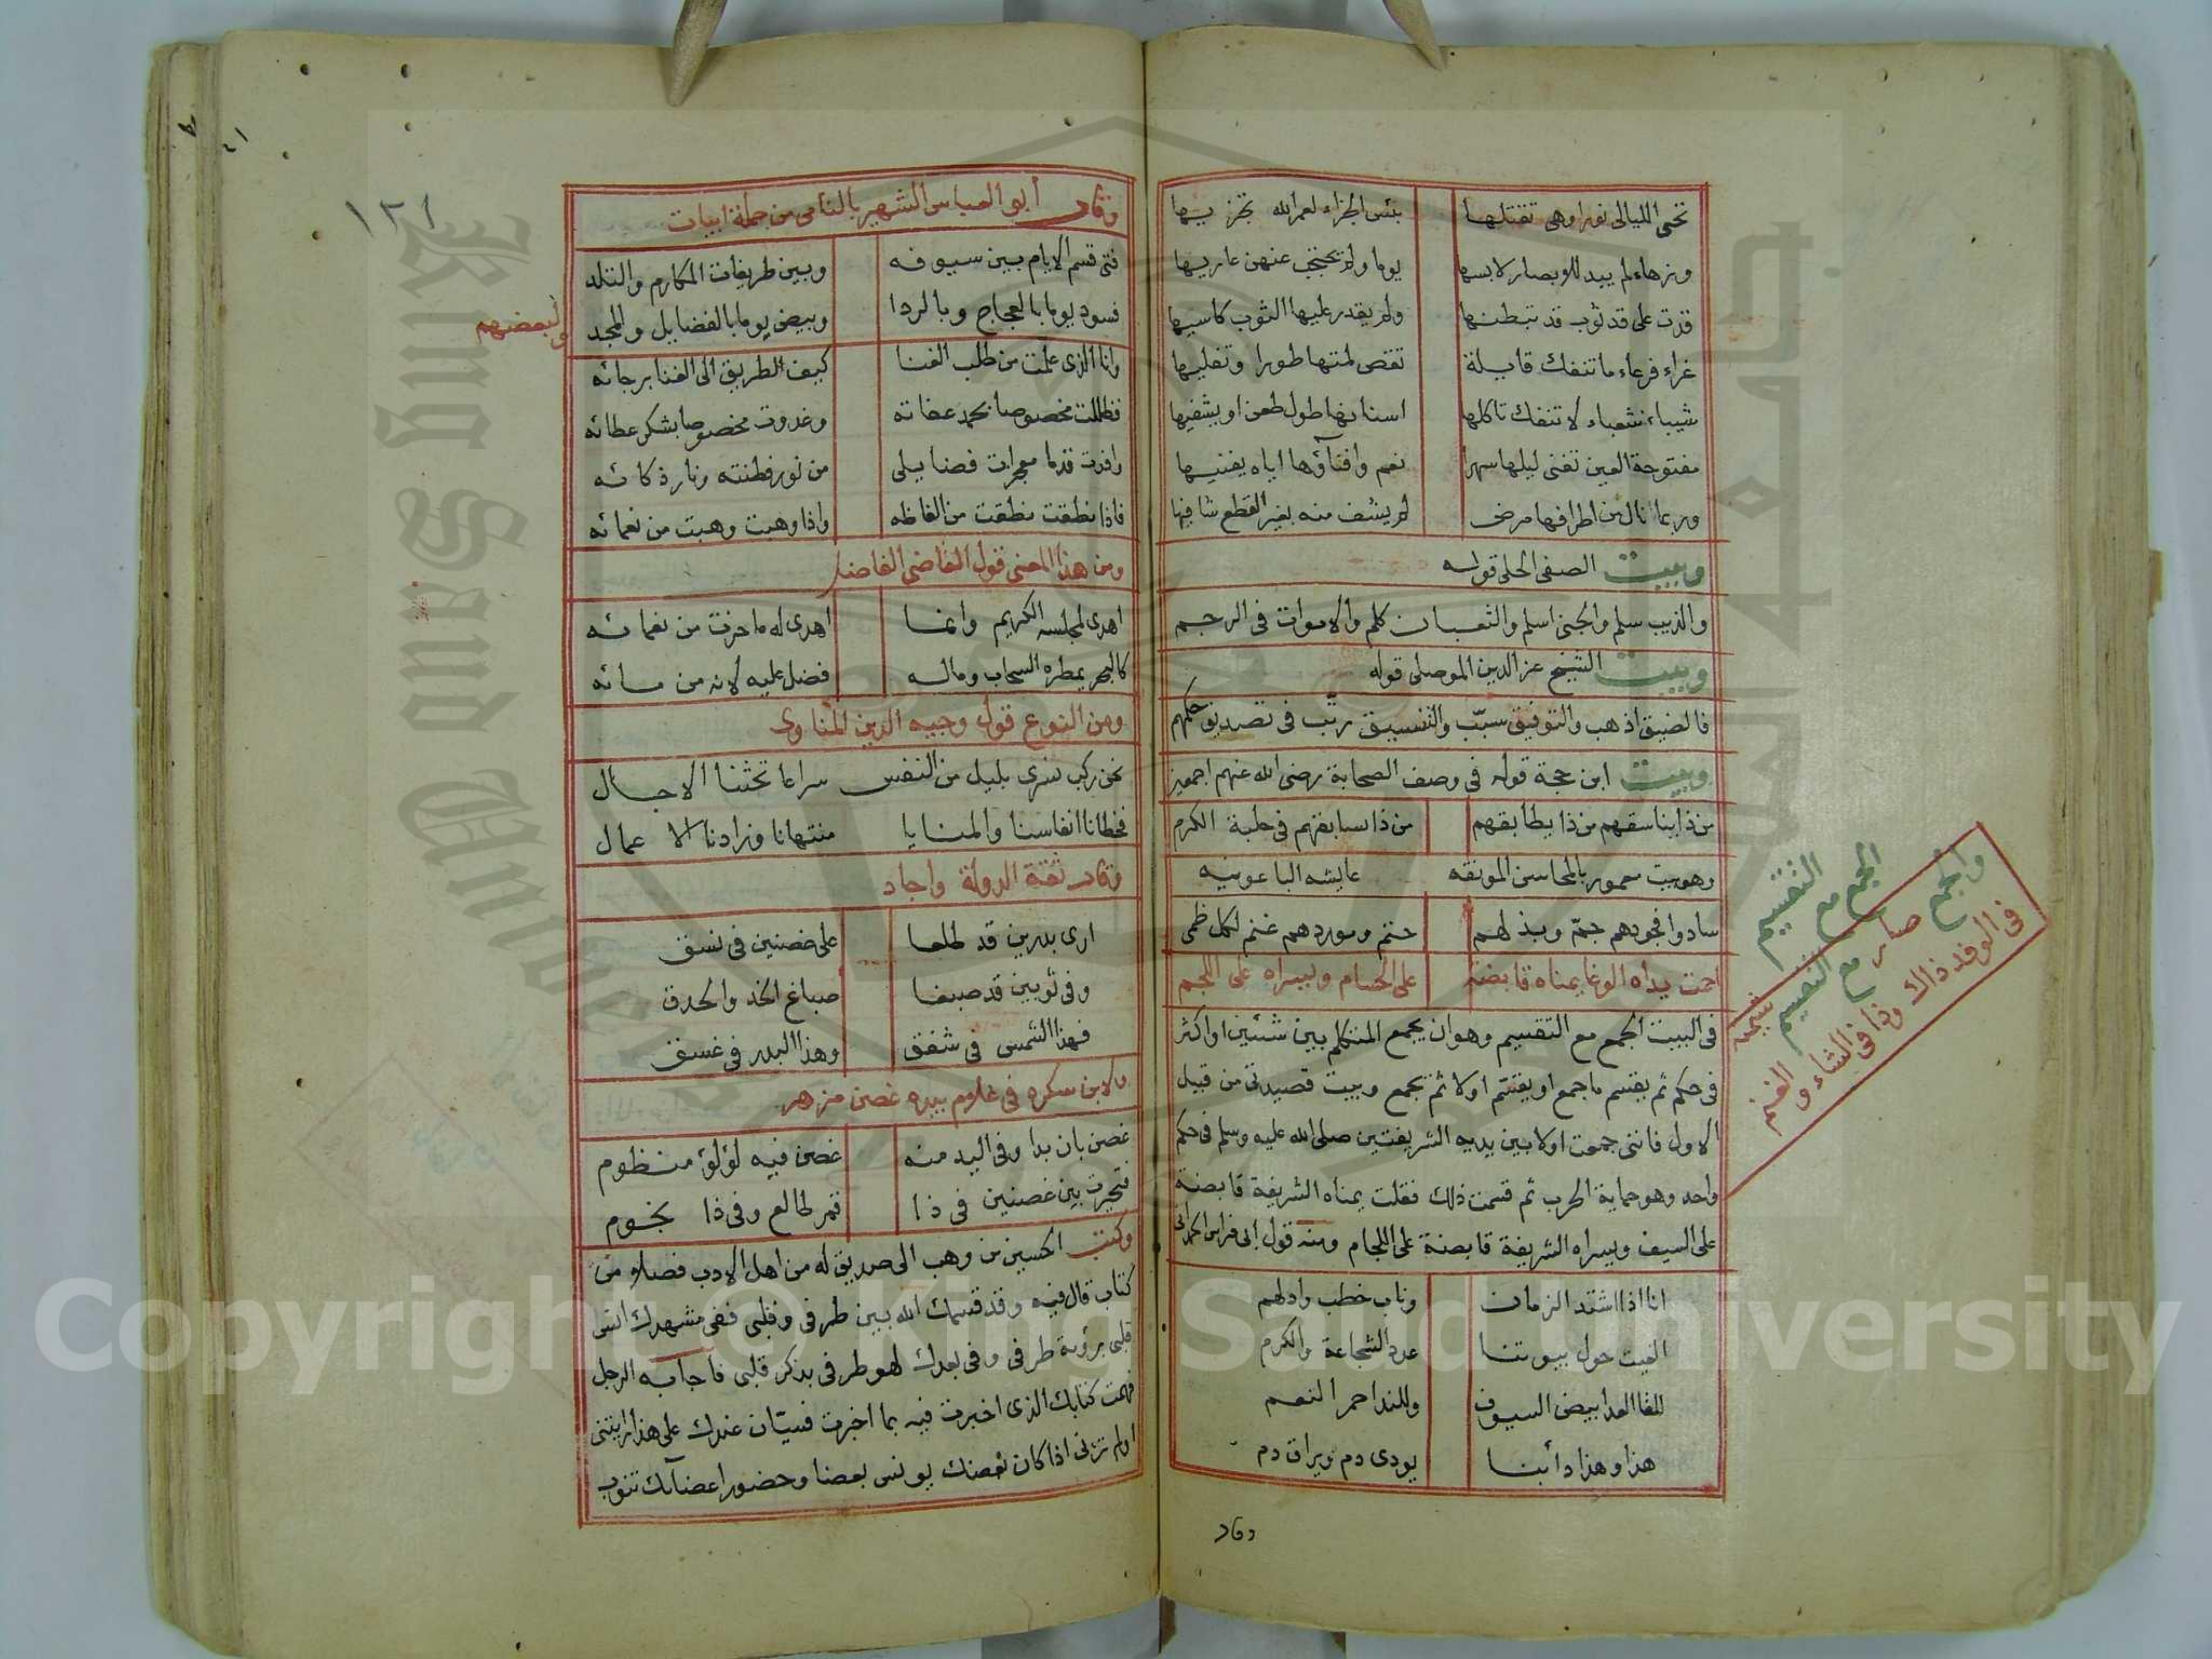 تحى الليالى نورا وهى تقتلها بئس الجزاء لعمر الله تجزيها
ورهاء لم يبد للابصار لابسها يوما ولم يحتجب عنهن عاريها
قدت على قد ثوب قد تبطنها ولم يقدر عليها الثوب كاسيها
غراء فرعاء ما تنفك قابلة تقص لمتها طورا وتفليها
شيباء شعباء لا تنفك تاكلها اسنانها طول طعن او يشفيها
مفتوحة العين تفنى ليلها سهرا نعم وافناؤها اياه يفنيها
وربما نال من اطرافها مرض لم يشف منه بغير القطع شافيها
وبيت الصفى الحلى قوله
والذيب سلم والجنى اسلم والثعبان كلم والاموات فى الرجم
وبيت الشيخ عز الدين الموصلى قوله
فالضيق اذهب والتوفيق سبب والتفسيق رتب فى تصديق حكمهم
وبيت ابن حجة قوله فى وصف الصحابة رضى الله عنهم اجمعين
من ذا يناسقهم من ذا يطابقهم من ذا يسابقهم فى حلبة الكرم
وهو بيت معمور بالمحاسن المونقه عايشه الباعونيه
سادوا فجودهم جم وبذلهم حتم وموردهم غنم لكل ظمى
احمت يداه الوغا يمناه قابضة على الحسام ويسراه على اللجم
فى البيت الجمع مع التقسيم وهو ان يجمع المتكلم بين شئين او اكثر
فى حكم ثم يقسم ما جمع او يقسم اولا ثم يجمع وبيت قصيدتى من قبيل
الاول فاننى جمعت اولا بين يديه الشريفتين صلى الله عليه وسلم فى حكم
واحد وهو حماية الحرب ثم قسمت ذلك فقلت يمناه الشريفة قابضة
على السيف ويسراه الشريفة قابضة على اللجام ومنه قول ابى فراس الحمدانى
انا اذا اشتد الزمان وناب خطب وادلهم
الفيت حول بيوتنا عدد الشجاعة والكرم
للقا العدا بيض السيوف وللندا حمر النعم
هذا وهذا دأبنا يودى دم ويراق دم
وقال
الجمع مع التقسيم
والجمع صار مع التقسيم شيمته
فى الوفد ذاك وذا فى الشاء والغنم
١٢١
وقال ابو العباس الشهير بالنامى من جملة ابيات
فتى قسم الايام بين سيوفه وبين طريفات المكارم والتلد
فسود يوما بالعجاج وبالردا وبيض يوما بالفضايل والمجد
ولبعضهم
وانا الذى علمت من طلب الغنا كيف الطريق الى الغنا برجائه
فظللت مخصوصا بحمد عفاته وغدوت مخصوصا بشكر عطائه
وافدت قدما معجزات فضايلى من نور فطنته ونار ذكائه
فاذا نطقت نطقت من الفاظه واذا وهبت وهبت من نعمائه
ومن هذا المعنى قول القاضى الفاضل
اهدى لمجلسه الكريم وانما اهدى له ما حزت من نعمائه
كالبحر يمطره السحاب وماله فضل عليه لانه من مائه
ومن النوع قول وجيه الدين المناوى
نحن ركب نسرى بليل من النفس سراعا تحثنا الاجال
فخطانا انفاسنا والمنايا منتهانا وزادنا الاعمال
وقال ثقة الدولة واجاد
ارى بدرين قد طلعا على غصنين فى نسق
وفى ثوبين قد صبغا صباغ الخد والحدق
فهذا الشمس فى شفق وهذا البدر فى غسق
ولابن سكره فى غلام بيده غصن مزهر
غصن بان بدا وفى اليد منه غصن فيه لؤلؤ منظوم
فتحيرت بين غصنين فى ذا قمر طالع وفى ذا نجوم
وكتب الحسين بن وهب الى صديق له من اهل الادب فصلا من
كتاب قال فيه وقد قسمك الله بين طرفى وقلبى ففى مشهدك انس
قلبى برؤية طرفى وفى بعدك لهو طرفى بذكر قلبى فاجابه الرجل
فهمت كتابك الذى اخبرت فيه بما اخبرت فسيان عندك على هذا رايتنى
او لم ترنى اذا كان بعضك يونس بعضا وحضور اعضآئك تنوب